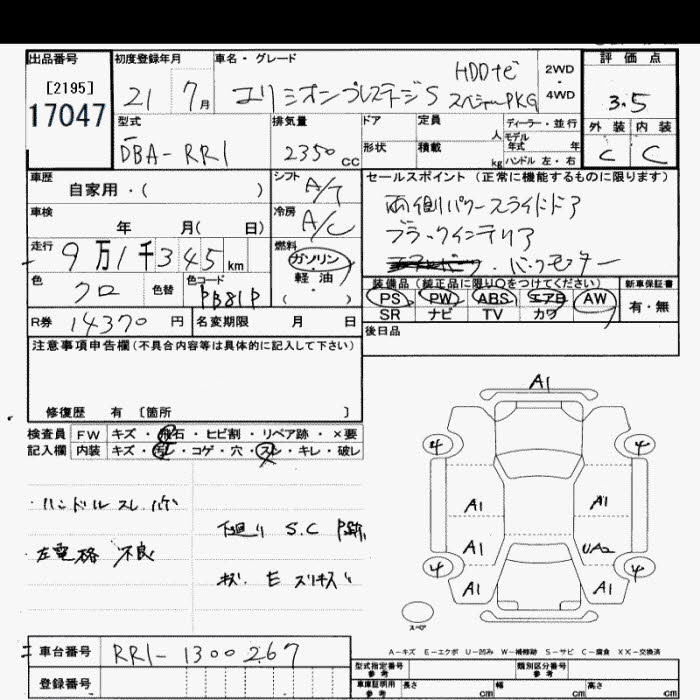 出品番号
[2195]
17047
初度登録年月
21 7月
車名・グレード
エリシオンプレステージS
HDDナビ
スペシャルPKG
2WD
4WD
評価点
3.5
外装 内装
C C
型式
DBA-RR1
排気量
2350 cc
ドア
形状
定員
人
積載
kg
ディーラー・並行
モデル
年式 年
ハンドル 左・右
車歴
自家用・( )
シフト
A/T
車検
年 月( 日)
冷房
A/C
走行
9万1千345km
燃料
ガソリン
軽油
( )
色
クロ
色替
色コード
R券 14370 円
名変期限 月 日
セールスポイント (正常に機能するものに限ります)
両側パワースライドドア
ブラックインテリア
バックモニター
装備品(純正品に限り○をつけてください)
PS PW ABS エアB AW
SR ナビ TV カワ
新車保証書
有・無
後日品
注意事項申告欄(不具合内容等は具体的に記入して下さい)
修復歴 有 〔箇所 〕
検査員
記入欄
FW キズ・飛石・ヒビ割・リペア跡・×要
内装 キズ・汚レ・コゲ・穴・スレ・キレ・破レ
ハンドルスレ
左電格 不良
下廻り S.C
キズ E スリキズ
A1
4 4
A1 A1
A1 UA2
4 4
A1 A1
スペア
A-キズ E-エクボ U-凹み W-補修跡 S-サビ C-腐食 XX-交換済
車台番号 RR1-1300267
登録番号
型式指定番号
参考
類別区分番号
参考
車庫証明用
参考
長さ cm 幅 cm 高さ cm